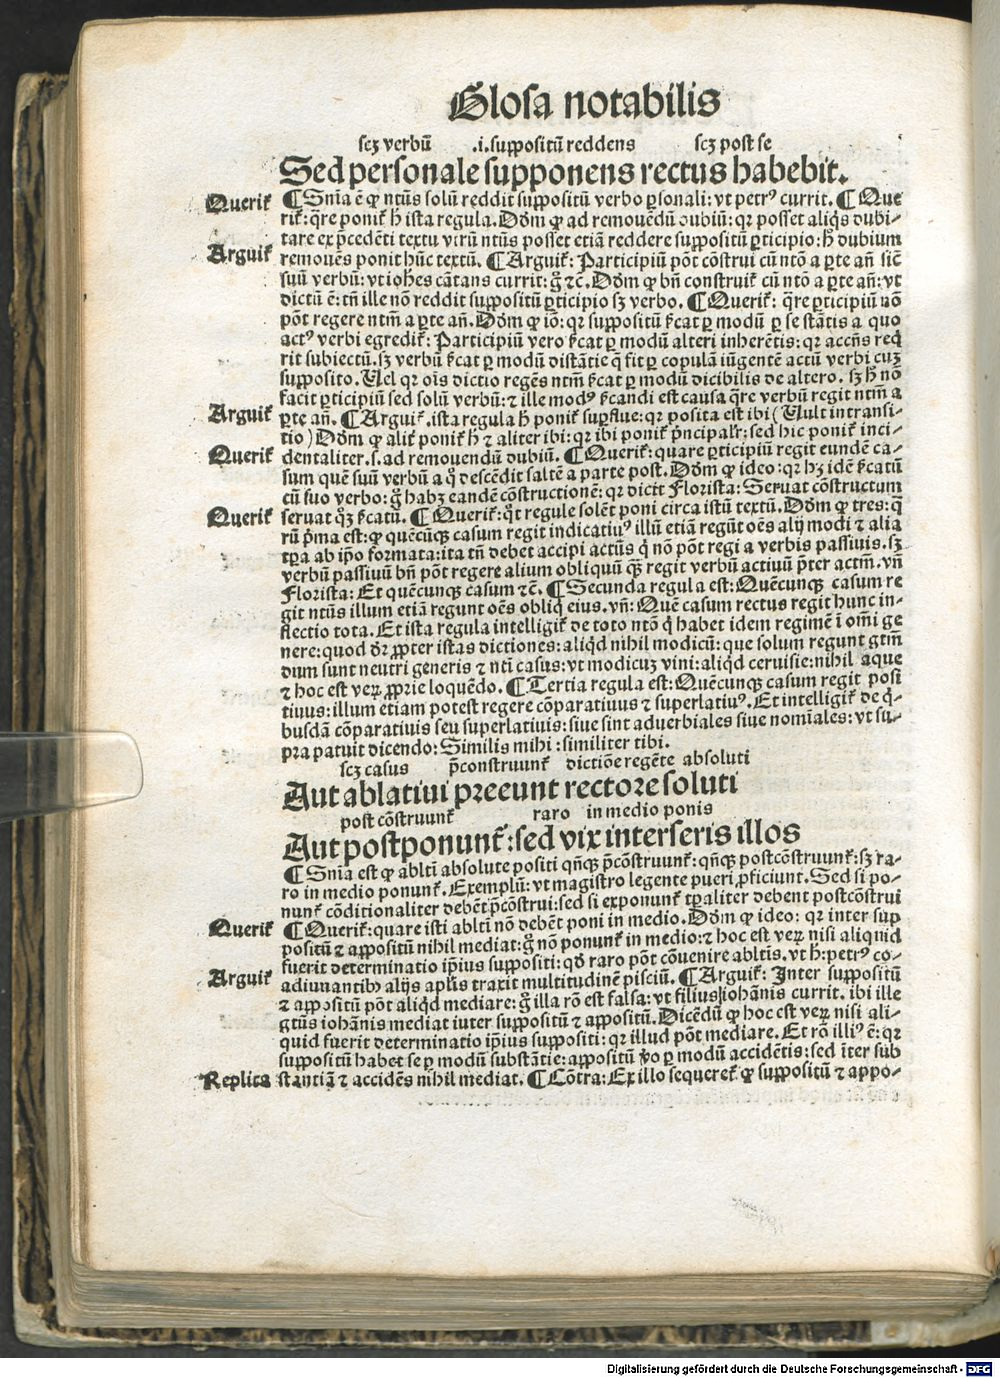 Glosa notabilis
scz verbū .i. suppositū reddens scz post se
Sed personale supponens rectus habebit.
Querit᷑ ¶ Snīa ē ꝙ ntūs solū reddit suppositū verbo ꝑsonali: vt petrꝰ currit. ¶ Que
rit᷑: q̄re ponit᷑ h̄ ista regula. Dōm ꝙ ad remouēdū dubiū: qꝛ posset aliq̄s dubi-
tare ex p̄cedēti textu vtrū ntūs posset etiā reddere suppositū ꝑticipio: h̄ dubium
Arguit᷑ remouēs ponit hūc textū. ¶ Arguit᷑: Participiū pōt cōstrui cū ntō a ꝑte añ sic̄
suū verbū: vt iohēs cātans currit: ḡ ⁊c̄. Dōm ꝙ bn̄ construit᷑ cū ntō a ꝑte añ: vt
dictū ē: tn̄ ille nō reddit suppositū ꝑticipio sꝫ verbo. ¶ Querit᷑: q̄re ꝑticipiū nō
pōt regere ntm̄ a ꝑte añ. Dōm ꝙ iō: qꝛ suppositū ſ̄cat ꝑ modū ꝑ se stātis a quo
actꝰ verbi egredit᷑: Participiū vero ſ̄cat ꝑ modū alteri inherētis: qꝛ accn̄s req̄
rit subiectū. sꝫ verbū ſ̄cat ꝑ modū distātie q̄ fit ꝑ copulā iūgentē actū verbi cuꝫ
supposito. Uel qꝛ oīs dictio regēs ntm̄ ſ̄cat ꝑ modū dicibilis de altero. sꝫ h̄ nō
facit ꝑticipiū sed solū verbū: ⁊ ille modꝰ ſ̄candi est causa q̄re verbū regit ntm̄ a
Arguit᷑ ꝑte añ. ¶ Arguit᷑. ista regula h̄ ponit᷑ suꝑflue: qꝛ posita est ibi (Uult intransi-
tio) Dōm ꝙ alit᷑ ponit᷑ h̄ ⁊ aliter ibi: qꝛ ibi ponit᷑ p̄ncipalr̄: sed hic ponit᷑ inci-
Querit᷑ dentaliter .s. ad remouendū dubiū. ¶ Querit᷑: quare ꝑticipiū regit eundē ca-
sum quē suū verbū a q̊ descēdit saltē a parte post. Dōm ꝙ ideo: qꝛ hꝫ idē ſ̄catū
cū suo verbo: g̊ habꝫ eandē cōstructionē: qꝛ dicit Florista: Seruat cōstructum
Querit᷑ seruat q̇ꝫ ſ̄catū. ¶ Querit᷑: q̊t regule solēt poni circa istū textū. Dōm ꝙ tres: q̄
rū p̄ma est: ꝙ quēcūqꝫ casum regit indicatiuꝰ illū etiā regūt oēs alij modi ⁊ alia
tꝑa ab ip̄o formata: ita tn̄ debet accipi actiūs q̄ nō pōt regi a verbis passiuis. sꝫ
verbū passiuū bn̄ pōt regere alium obliquū qꝫ regit verbū actiuū p̄ter actm̄. vn̄
Florista: Et quēcunqꝫ casum ⁊c̄. ¶ Secunda regula est: Quēcunqꝫ casum re
git ntūs illum etiā regunt oēs obliq̇ eius. vn̄: Quē casum rectus regit hunc in-
flectio tota. Et ista regula intelligit᷑ de toto ntō q̇ habet idem regimē ī omī ge
nere: quod dr̄ ꝓpter istas dictiones: aliq̇d nihil modicū: que solum regunt gtm̄
dum sunt neutri generis ⁊ nt̄i casus: vt modicuꝫ vini: aliq̇d ceruisie: nihil aque
⁊ hoc est veꝝ ꝓprie loquēdo. ¶ Tertia regula est: Quēcunqꝫ casum regit posi
tiuus: illum etiam potest regere cōparatiuus ⁊ superlatiuꝰ. Et intelligit᷑ de q̇-
busdā cōparatiuis seu superlatiuis: siue sint aduerbiales siue nomīales: vt su-
pra patuit dicendo: Similis mihi: similiter tibi.
scꝫ casus p̄construunt᷑ dictiōe regēte absoluti
Aut ablatiui preeunt rectore soluti
post cōstruunt᷑ raro in medio ponis
Aut postponunt᷑: sed vix interseris illos
¶ Snīa est ꝙ abltī absolute positi qn̄qꝫ p̄cōstruunt᷑: qn̄qꝫ postcōstruunt᷑: sꝫ ra-
ro in medio ponunt᷑. Exemplū: vt magistro legente pueri ꝓficiunt. Sed si po-
nunt᷑ cōditionaliter debēt p̄cōstrui: sed si exponunt᷑ tꝑaliter debent postcōstrui
Querit᷑ ¶ Querit᷑: quare isti abltī nō debēt poni in medio. Dōm ꝙ ideo: qꝛ inter sup
positū ⁊ appositū nihil mediat: g̊ nō ponunt᷑ in medio: ⁊ hoc est veꝝ nisi aliquid
fuerit determinatio ip̄ius suppositi: qd̄ raro pōt cōuenire abltīs. vt h̄: petrꝰ co-
Arguit᷑ adiuuantibꝰ alijs apl̄is traxit multitudinē pisciū. ¶ Arguit᷑: Inter suppositū
⁊ appositū pōt aliq̇d mediare: g̊ illa rō est falsa: vt filius iohānis currit. ibi ille
gtūs iohānis mediat inter suppositū ⁊ appositū. Dicēdū ꝙ hoc est veꝝ nisi ali-
quid fuerit determinatio ip̄ius suppositi: qꝛ illud pōt mediare. Et rō illiꝰ ē: qꝛ
suppositū habet se ꝑ modū substātie: appositū v̊o ꝑ modū accidētis: sed īter sub
Replica stantiā ⁊ accidēs nihil mediat. ¶ Cōtra: Ex illo sequeret᷑ ꝙ suppositū ⁊ appo-
Digitalisierung gefördert durch die Deutsche Forschungsgemeinschaft - DFG